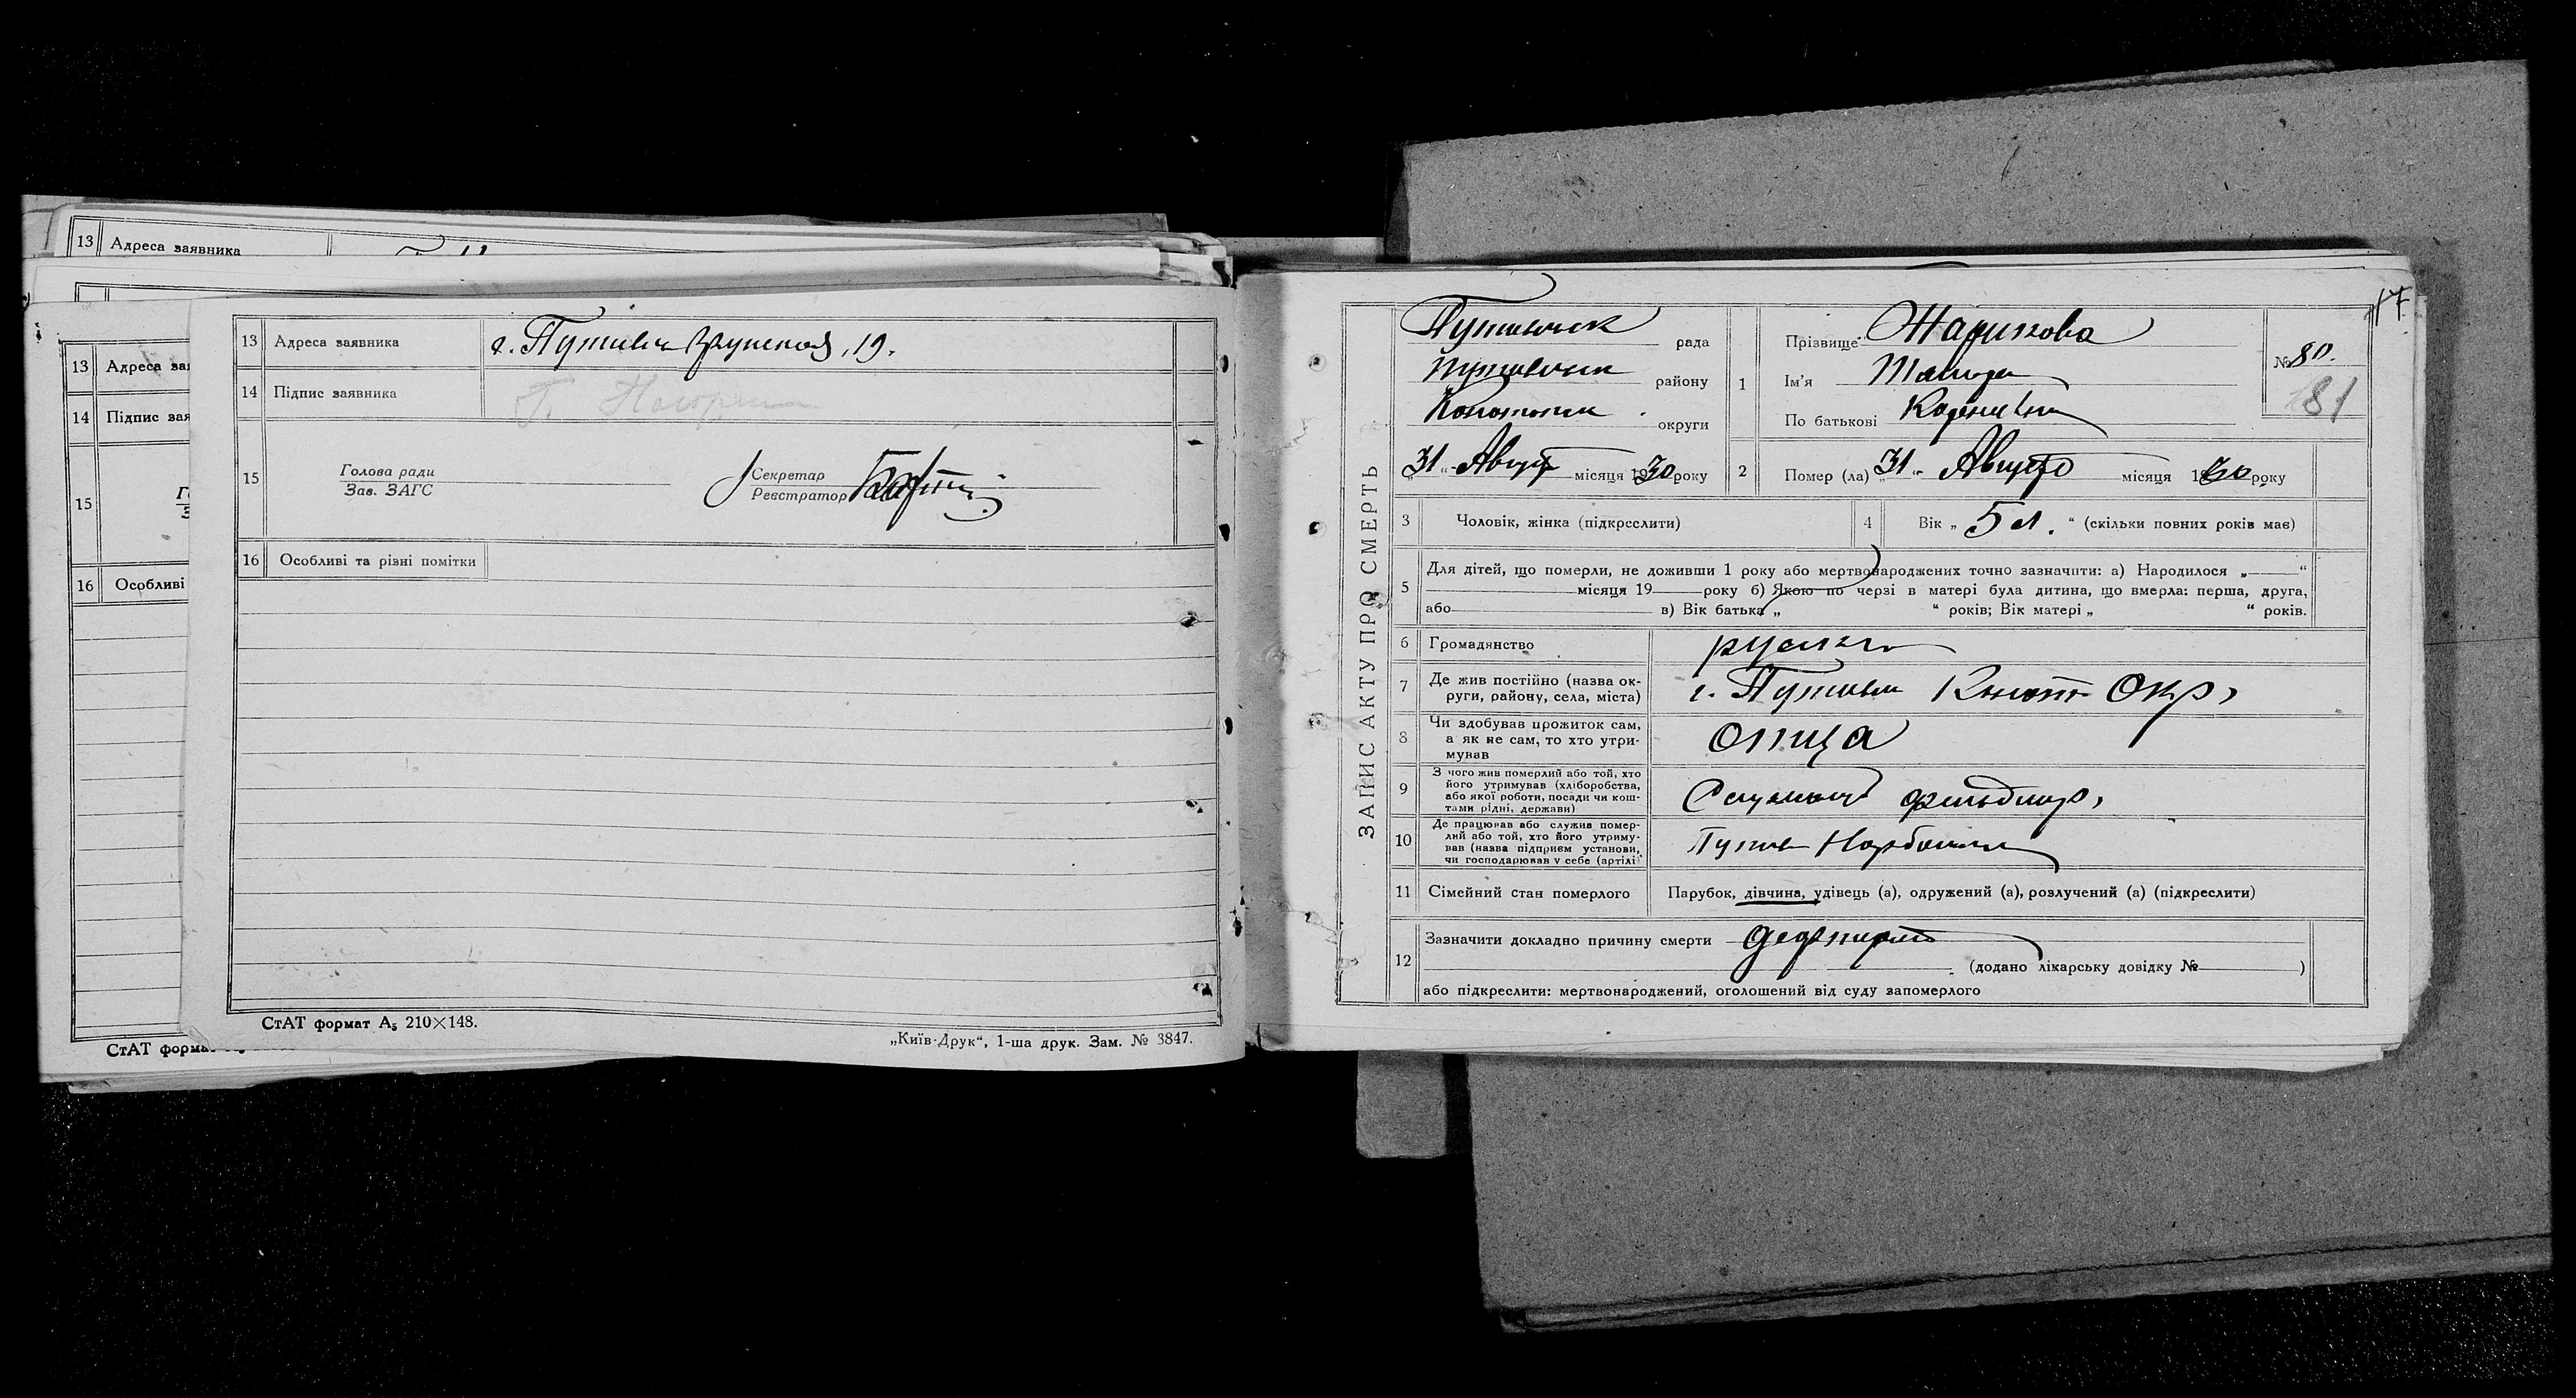 13 Адреса заявника
13 Адреса зая
14 Підпис зая
15
16 Особливі
СтАТ форма
13 Адреса заявника г. Путивль 19.
14 Підпис заявника
15 Голова ради
Зав. ЗАГС
Секретар
Реєстратор
16 Особливі та різні помітки
СтАТ формат А₅ 210×148.
„Київ-Друк“, 1-ша друк. Зам. № 3847.
17
ЗАПИС АКТУ ПРО СМЕРТЬ
Путивльск рада
Путивльск району
Конотопск. округи
31 „ Август місяця 1930 року
1 Прізвище Жарикова
Ім'я
По батькові
№ 80.
181
2 Помер (ла) „31 „ Августа місяця 1930 року
3 Чоловік, жінка (підкреслити)
4 Вік „ 5 л. “ (скільки повних років має)
5 Для дітей, що померли, не доживши 1 року або мертвонароджених точно зазначити: а) Народилося „ “
місяця 19 року б) Якою по черзі в матері була дитина, що вмерла: перша, друга,
або в) Вік батька „ “ років; Вік матері „ “ років.
6 Громадянство русская
7 Де жив постійно (назва ок-
руги, району, села, міста) г. Путивль Конот Окр,
8 Чи здобував прожиток сам,
а як не сам, то хто утри-
мував отца
9 З чого жив померлий або той, хто
його утримував (хліборобства,
або якої роботи, посади чи кош-
тами рідні, держави)
10 Де працював або служив помер-
лий або той, хто його утриму-
вав (назва підприєм установи,
чи господарював у себе (артілі)
11 Сімейний стан померлого Парубок, дівчина, удівець (а), одружений (а), розлучений (а) (підкреслити)
12 Зазначити докладно причину смерти дефтерит
(додано лікарську довідку № )
або підкреслити: мертвонароджений, оголошений від суду запомерлого